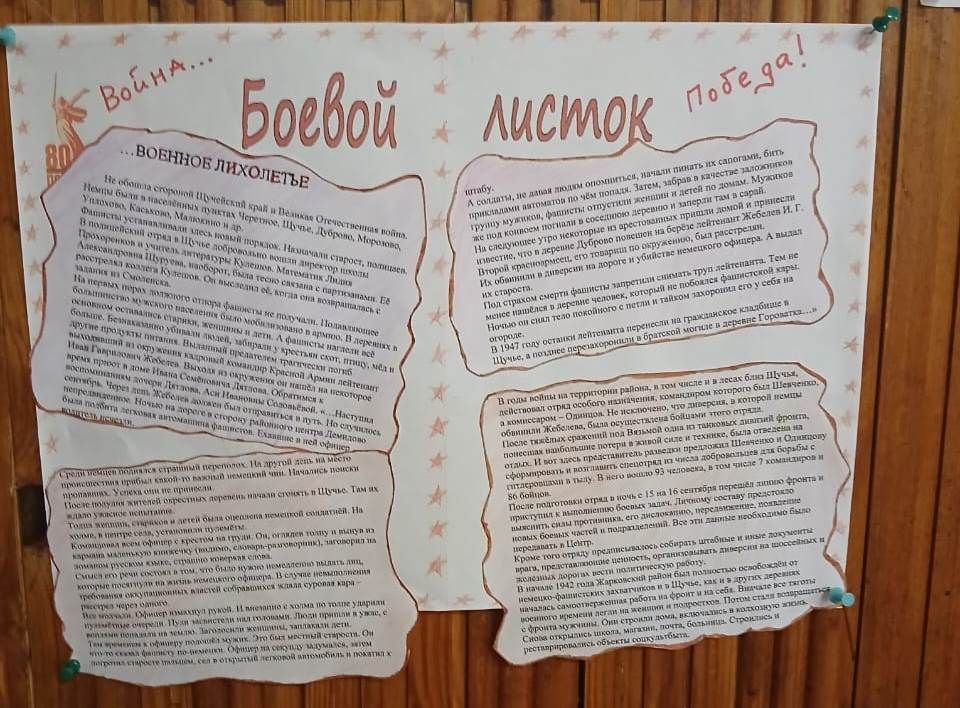 Война...
Боевой листок
Победа!
80
...ВОЕННОЕ ЛИХОЛЕТЬЕ
Не обошла стороной Щучейский край и Великая Отечественная война.
Немцы были в населённых пунктах Черетное, Щучье, Дуброво, Морозово,
Уплохово, Каськово, Малюкино и др.
Фашисты устанавливали здесь новый порядок. Назначали старост, полицаев.
В полицейский отряд в Щучье добровольно вошли директор школы
Прохоренков и учитель литературы Кулешов. Математик Лидия
Александровна Шуруева, наоборот, была тесно связана с партизанами. Её
расстрелял коллега Кулешов. Он выследил её, когда она возвращалась с
задания из Смоленска.
На первых порах должного отпора фашисты не получали. Подавляющее
большинство мужского населения было мобилизовано в армию. В деревнях в
основном оставались старики, женщины и дети. А фашисты наглели всё
больше. Безнаказанно убивали людей, забирали у крестьян скот, птицу, мёд и
другие продукты питания. Выданный предателем трагически погиб
выходивший из окружения кадровый командир Красной Армии лейтенант
Иван Гаврилович Жебелев. Выходя из окружения он нашёл на некоторое
время приют в доме Ивана Семёновича Дятлова. Обратимся к
воспоминаниям дочери Дятлова, Аси Ивановны Соловьёвой, «...Наступил
сентябрь. Через день Жебелев должен был отправиться в путь. Но случилось
непредвиденное. Ночью на дороге в сторону районного центра Демидово
была подбита легковая автомашина фашистов. Ехавшие в ней офицер
водитель исчезли.
Среди немцев поднялся страшный переполох. На другой день на место
происшествия прибыл какой-то важный немецкий чин. Начались поиски
пропавших. Успеха они не принесли.
После полудня жителей окрестных деревень начали сгонять в Щучье. Там их
ждало ужасное испытание.
Толпа женщин, стариков и детей была оцеплена немецкой солдатнёй. На
холме, в центре села, установили пулемёты.
Командовал всем офицер с крестом на груди. Он, оглядев толпу и вынув из
кармана маленькую книжечку (видимо, словарь-разговорник), заговорил на
ломаном русском языке, страшно коверкая слова.
Смысл его речи состоял в том, что было нужно немедленно выдать лиц,
которые посягнули на жизнь немецкого офицера. В случае невыполнения
требования оккупационных властей собравшихся ждала суровая кара –
расстрел через одного.
Все молчали. Офицер взмахнул рукой. И внезапно с холма по толпе ударили
пулемётные очереди. Пули засвистели над головами. Люди пришли в ужас, с
воплями попадали на землю. Заголосили женщины, заплакали дети.
Тем временем к офицеру подошёл мужик. Это был местный староста. Он
что-то сказал фашисту по-немецки. Офицер на секунду задумался, затем
погрозил старосте пальцем, сел в открытый легковой автомобиль и покатил к
штабу.
А солдаты, не давая людям опомниться, начали пинать их сапогами, бить
прикладами автоматов по чём попадя. Затем, забрав в качестве заложников
группу мужиков, фашисты отпустили женщин и детей по домам. Мужиков
же под конвоем погнали в соседнюю деревню и заперли там в сарай.
На следующее утро некоторые из арестованных пришли домой и принесли
известие, что в деревне Дуброво повешен на берёзе лейтенант Жебелев И. Г.
Второй красноармеец, его товарищ по окружению, был расстрелян.
Их обвинили в диверсии на дороге и убийстве немецкого офицера. А выдал
их староста.
Под страхом смерти фашисты запретили снимать труп лейтенанта. Тем не
менее нашёлся в деревне человек, который не побоялся фашистской кары.
Ночью он снял тело покойного с петли и тайком захоронил его у себя на
огороде.
В 1947 году останки лейтенанта перенесли на гражданское кладбище в
Щучье, а позднее перезахоронили в братской могиле в деревне Городатка...»
В годы войны на территории района, в том числе и в лесах близ Щучья,
действовал отряд особого назначения, командиром которого был Шевченко,
а комиссаром – Одинцов. Не исключено, что диверсия, в которой немцы
обвинили Жебелева, была осуществлена бойцами этого отряда.
После тяжёлых сражений под Вязьмой одна из танковых дивизий фронта,
понесшая наибольшие потери в живой силе и технике, была отведена на
отдых. И вот здесь представитель разведки предложил Шевченко и Одинцову
сформировать и возглавить спецотряд из числа добровольцев для борьбы с
гитлеровцами в тылу. В него вошло 93 человека, в том числе 7 командиров и
86 бойцов.
После подготовки отряд в ночь с 15 на 16 сентября перешёл линию фронта и
приступил к выполнению боевых задач. Личному составу предстояло
выяснить силы противника, его дислокацию, передвижение, появление
новых боевых частей и подразделений. Все эти данные необходимо было
передавать в Центр.
Кроме того отряду предписывалось собирать штабные и иные документы
врага, представляющие ценность, организовывать диверсии на шоссейных и
железных дорогах вести политическую работу.
В начале 1942 года Жарковский район был полностью освобождён от
немецко-фашистских захватчиков и в Щучье, как и в других деревнях
началась самоотверженная работа на фронт и на себя. Вначале все тяготы
военного времени легли на женщин и подростков. Потом стали возвращаться
с фронта мужчины. Они строили дома, включались в колхозную жизнь.
Снова открылись школа, магазин, почта, больница. Строились и
реставрировались объекты соцкультбыта.